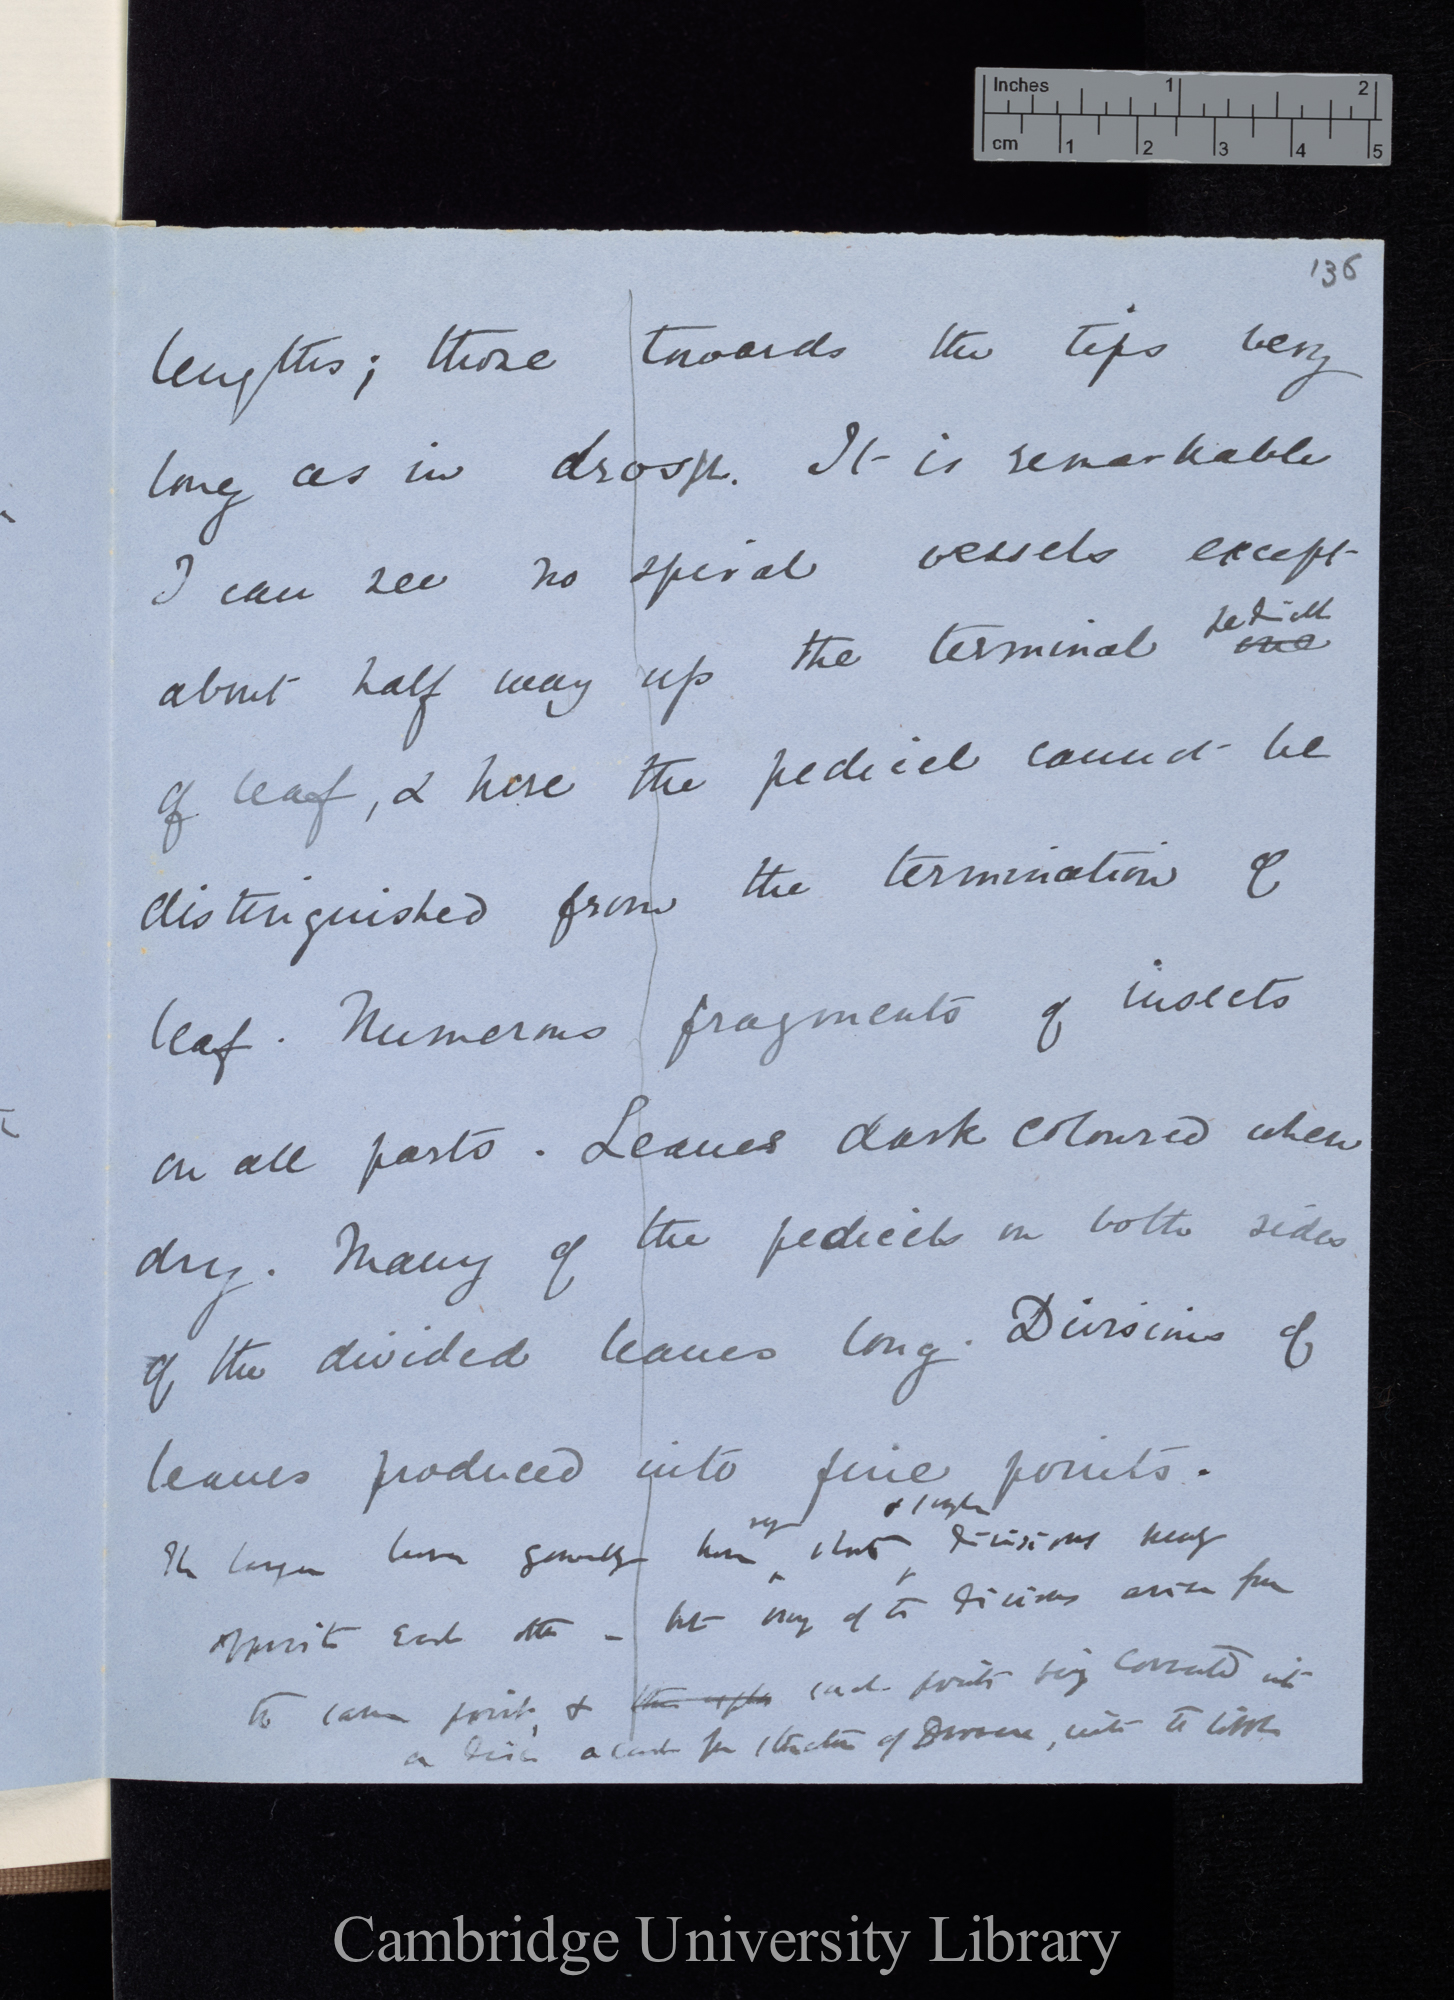 Inches 1 2
cm 1 2 3 4 5
136
lengths; those towards the tips very
long as in drosph. It is remarkable
I can see no spiral vessels except
pedicel
about half way up the terminal one
of leaf, & here the pedicel cannot be
distinguished from the termination of
leaf. Numerous fragments of insects
on all parts. Leaves dark coloured when
dry. Many of the pedicels on both sides
of the divided leaves long. Divisions of
leaves produced into fine points.
& longer
The larger leaves generally have short divisions nearly
opposite each other – but many of the divisions arise from
the same point, & such points being converted into
a disc account for structure of Drosera, with the little
Cambridge University Library